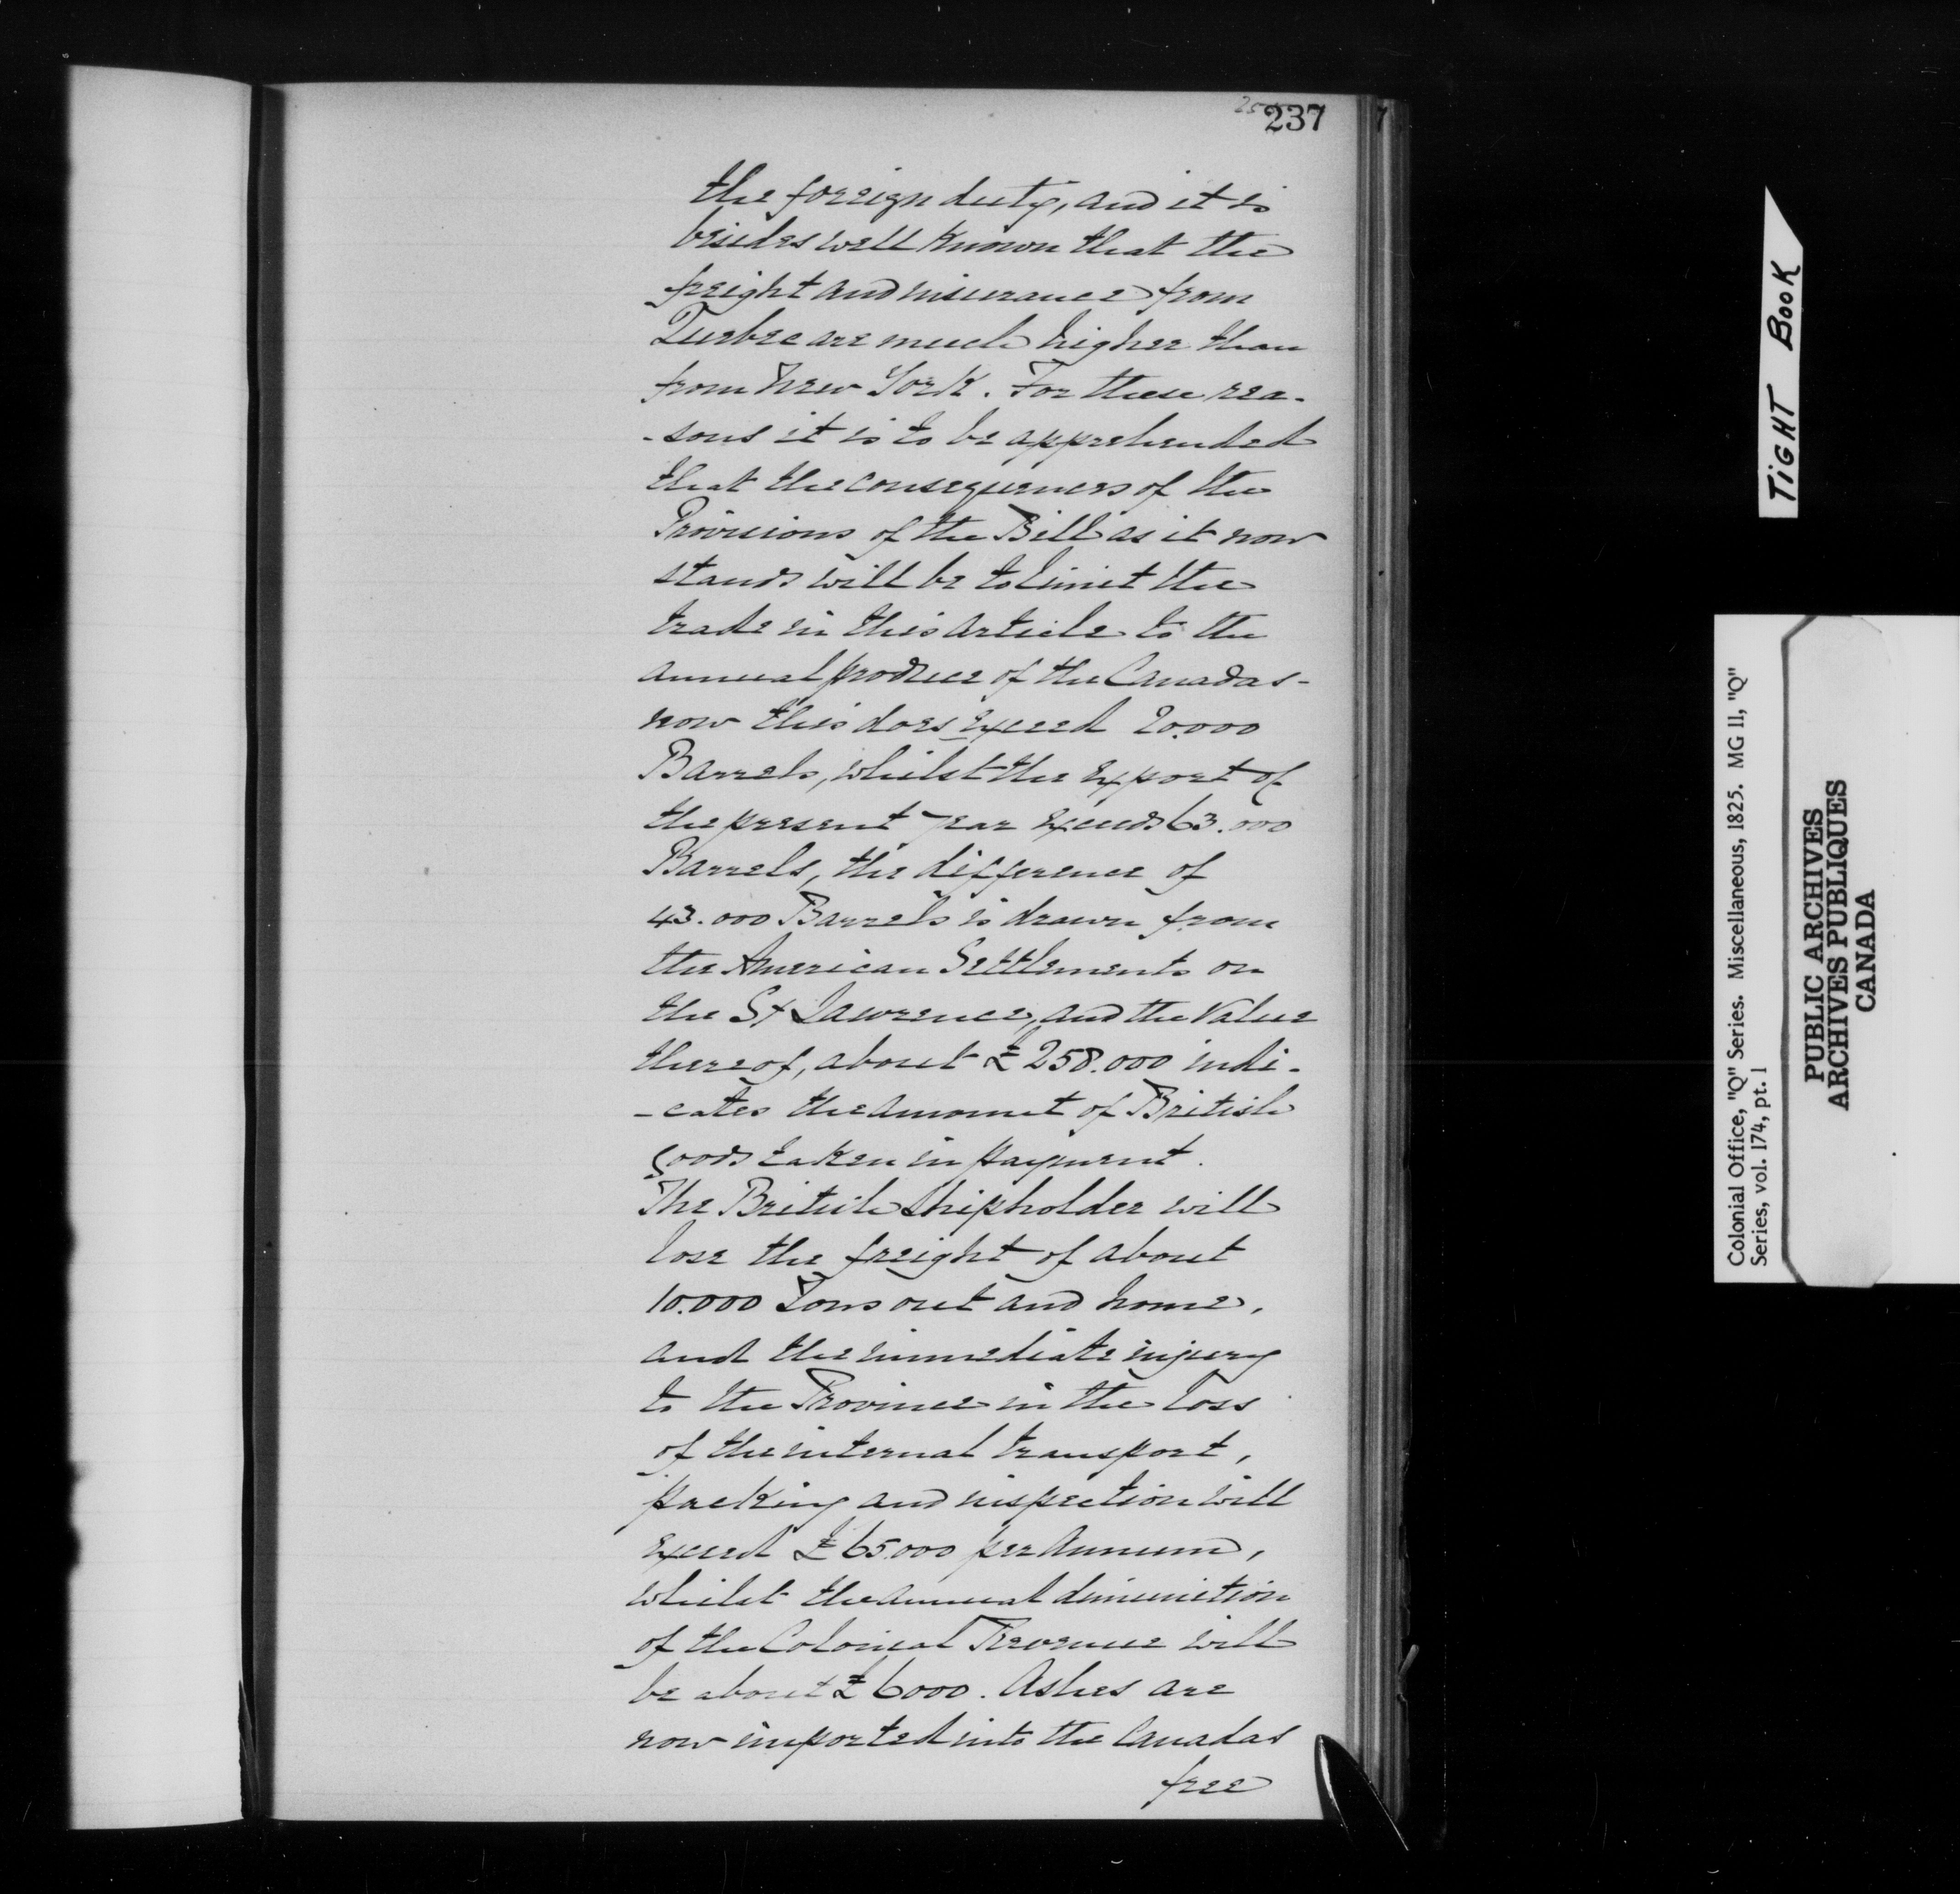 237
the foreign duty, and it is
besides well known that the
freight and insurance from
Quebec are much higher than
from New York. For these rea-
-sons it is to be apprehended
that the consequences of the
Provisions of the Bill as it now
stands will be to limit the
trade in this article to the
annual produce of the Canadas-
now this does exceed 20.000
Barrels, whilst the export of
the present year exceeds 63.000
Barrels, the difference of
43.000 Barrels is drawn from
the American Settlements on
the St Lawrence, and the value
thereof, about £258.000 indi-
-cates the amount of British
goods taken in payment.
The British Shipholder will
lose the freight of about
10.000 Tons out and home,
and the immediate injury
to the Province in the loss
of the internal transport,
packing and inspection will
exceed £65.000 per Annum,
whilst the annual diminution
of the Colonial Revenue will
be about £6000. Ashes are
now imported into the Canadas
free
TIGHT BOOK
Colonial Office, "Q" Series. Miscellaneous, 1825. MG 11, "Q"
Series, vol. 174, pt. 1
PUBLIC ARCHIVES
ARCHIVES PUBLIQUES
CANADA